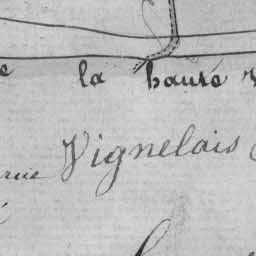 la haute
Vignelais
rue